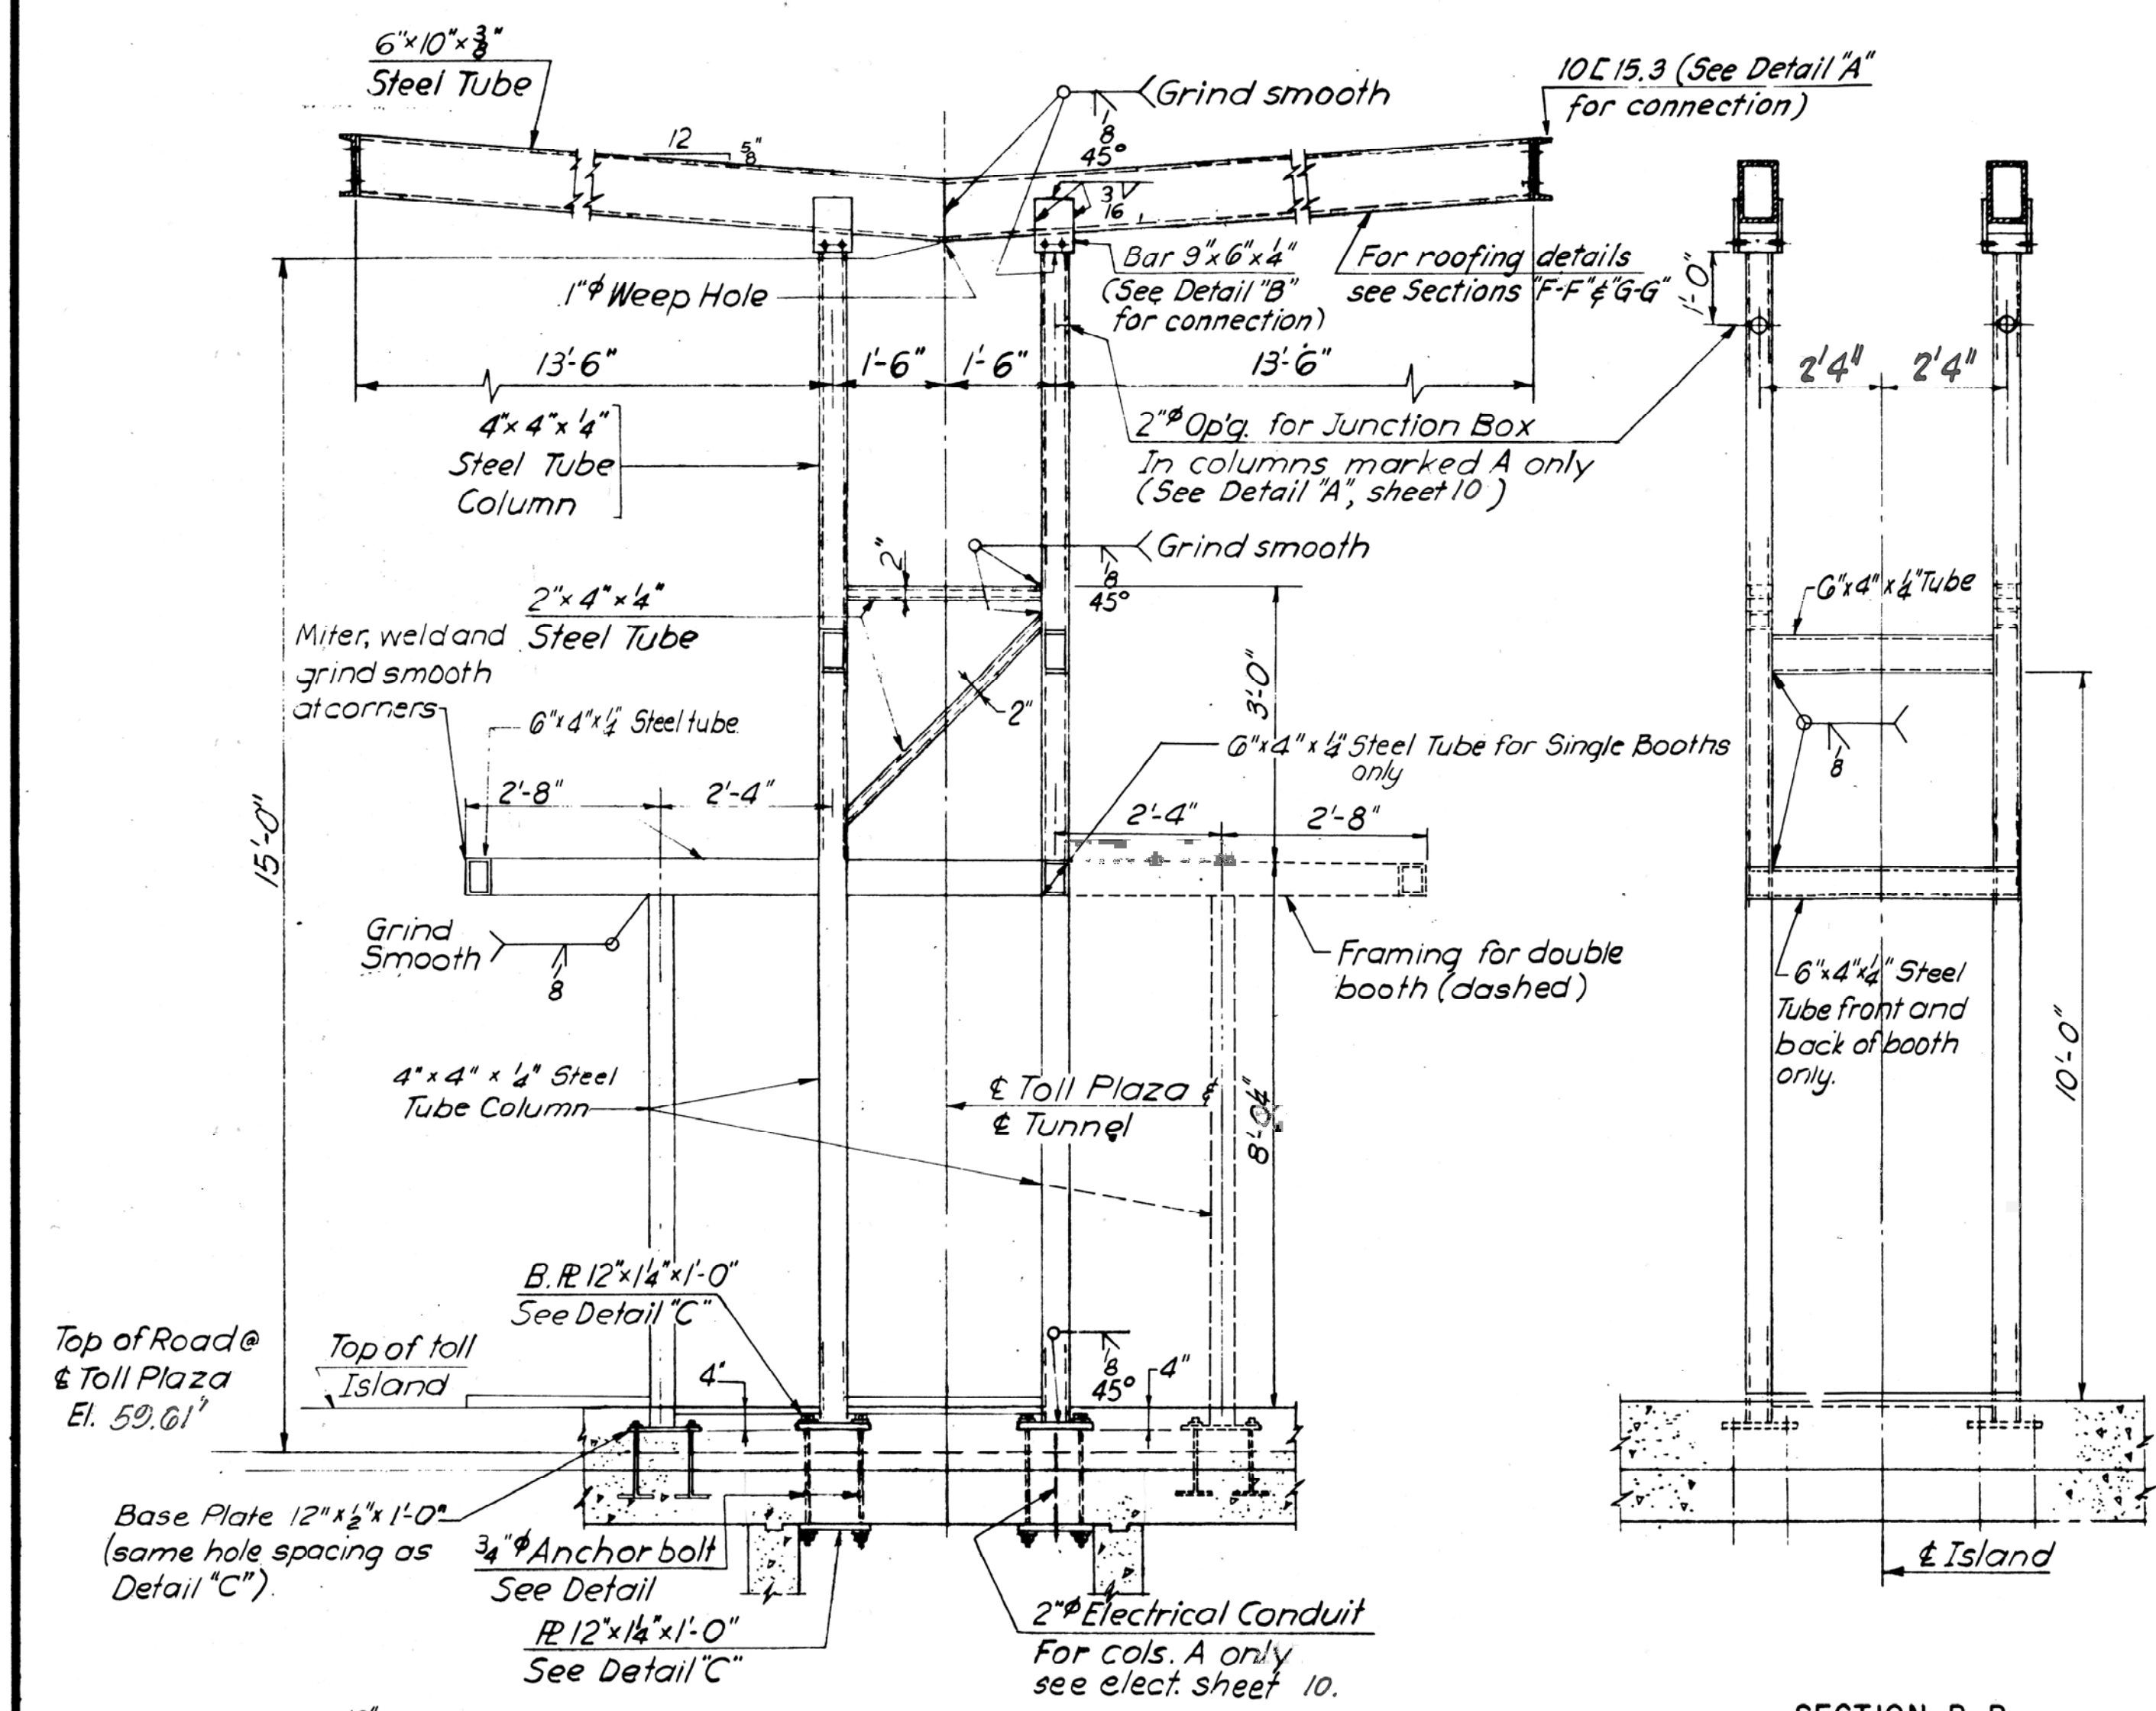 6"x10"x3/8"
Steel Tube
12
5/8"
Grind smooth
1/8
45°
3/16
10[15.3 (See Detail "A"
for connection)
1"φ Weep Hole
Bar 9"x6"x1/4"
(See Detail "B"
for connection)
For roofing details
see Sections "F-F"&"G-G"
1'-0"
13'-6"
1'-6"
1'-6"
13'-6"
2'4"
2'4"
4"x4"x1/4"
Steel Tube
Column
2"φ Op'g. for Junction Box
In columns marked A only
(See Detail "A", sheet 10)
2"
Grind smooth
1/8
45°
2"x4"x1/4"
Steel Tube
6"x4"x1/4" Tube
Miter, weld and
grind smooth
at corners
6"x4"x1/4 Steel tube
2"
3'-0"
6"x4"x1/4 Steel Tube for Single Booths
only
1/8
2'-8"
2'-4"
2'-4"
2'-8"
15'-0"
Grind
Smooth
1/8
Framing for double
booth (dashed)
6"x4"x1/4" Steel
Tube front and
back of booth
only.
10'-0"
4"x4"x1/4" Steel
Tube Column
℄ Toll Plaza &
℄ Tunnel
B.PL 12"x1 1/4"x1'-0"
See Detail "C"
Top of Road @
℄ Toll Plaza
El. 59.61'
Top of toll
Island
4"
1/8
45°
4"
Base Plate 12"x1/2"x1'-0"
(same hole spacing as
Detail "C").
3/4"φ Anchor bolt
See Detail
PL 12"x1 1/4"x1'-0"
See Detail "C"
2"φ Electrical Conduit
For cols. A only
see elect. sheet 10.
℄ Island